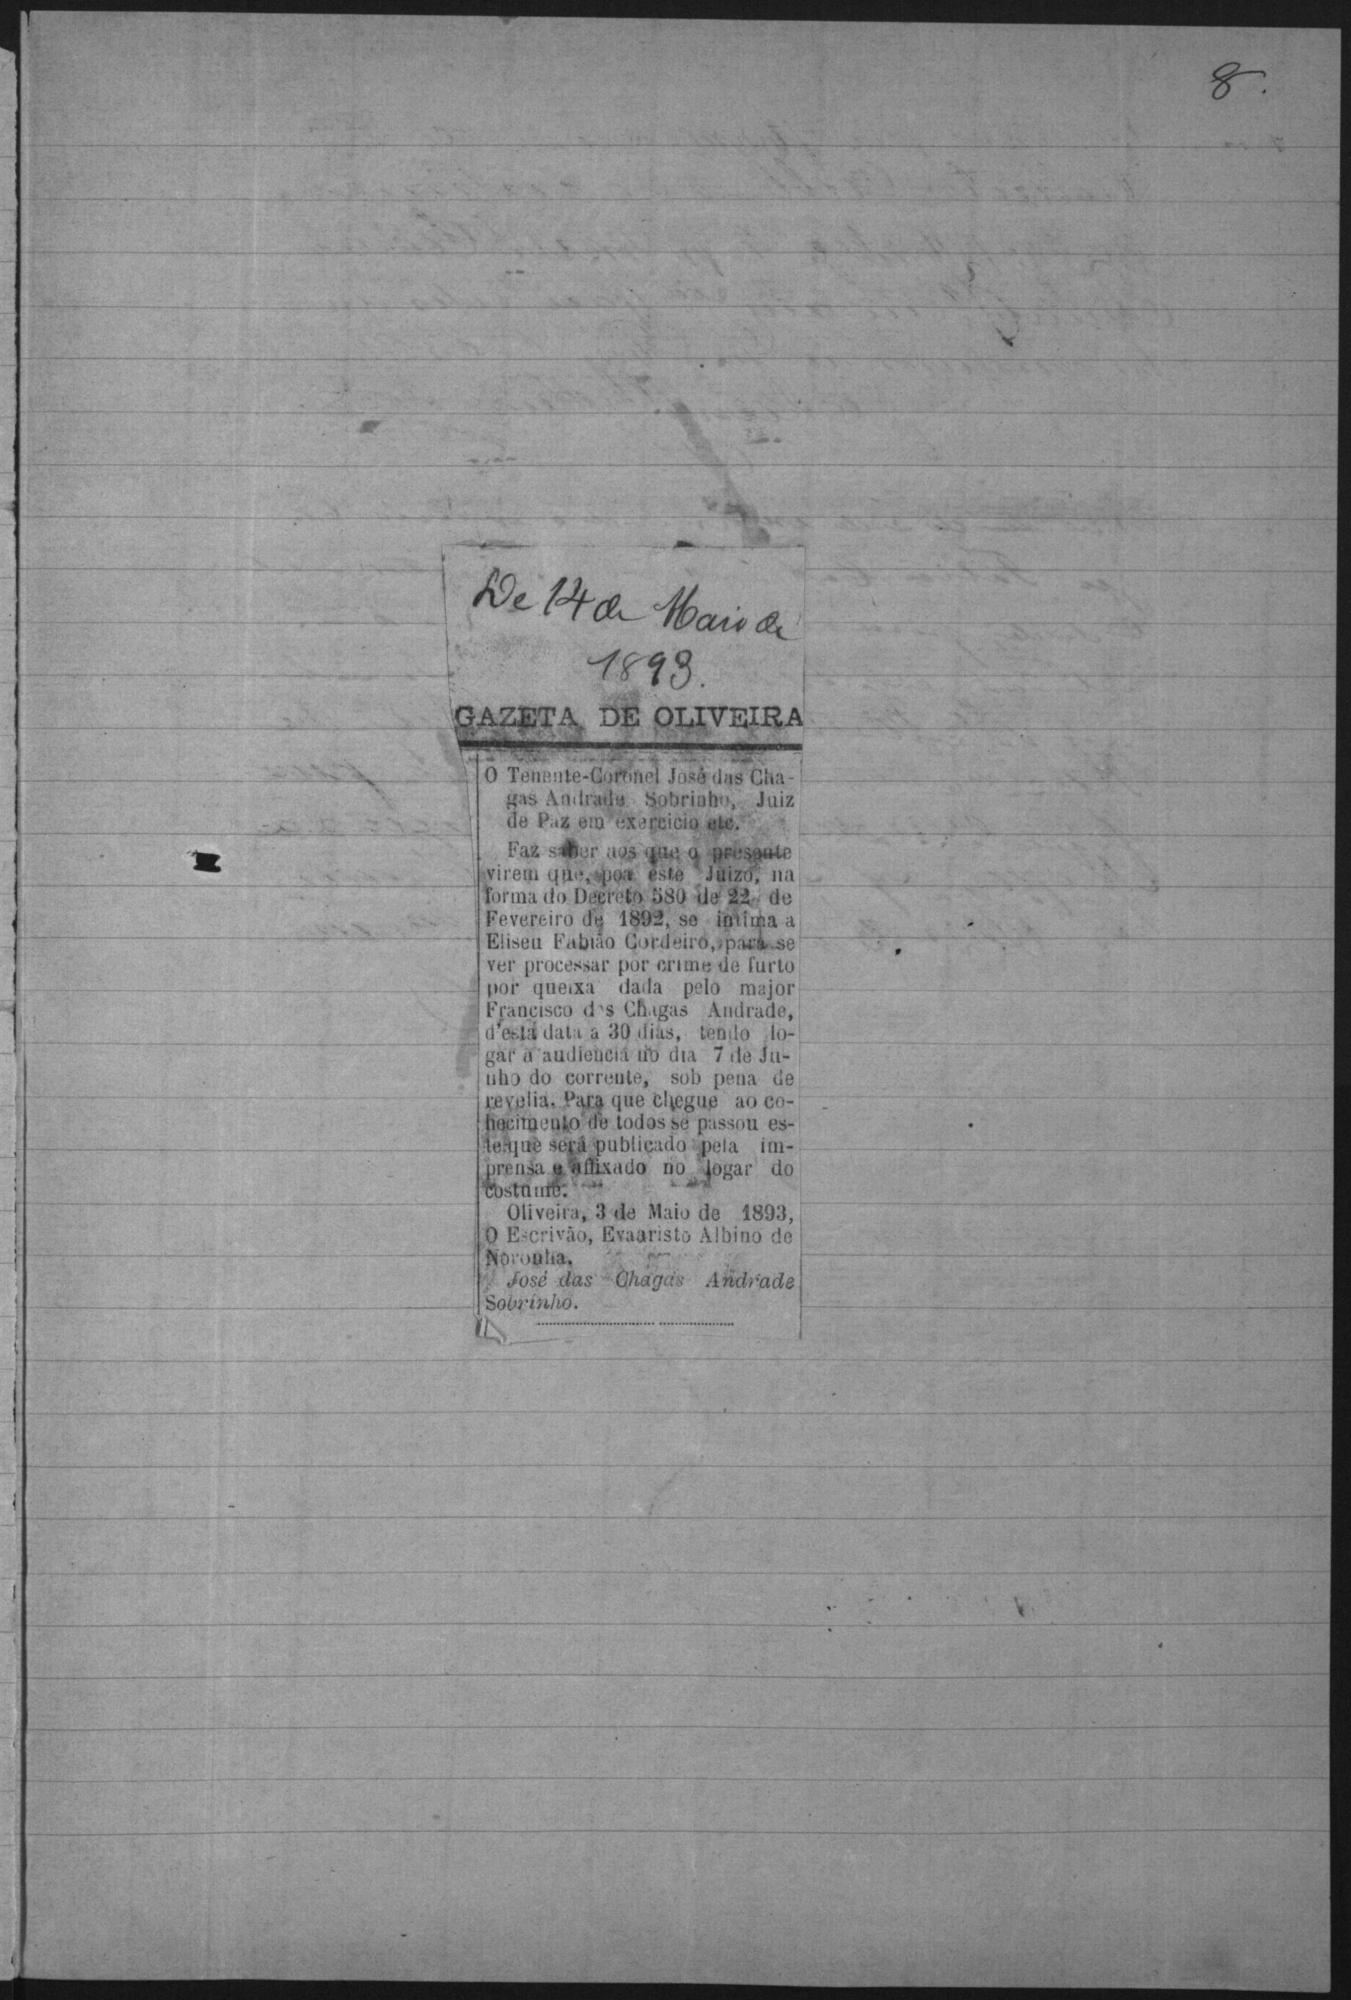 8.
De 14 de Maio de
1893.
GAZETA DE OLIVEIRA
O Tenente-Coronel José das Cha-
gas Andrade Sobrinho, Juiz
de Paz em exercicio etc.
Faz saber aos que o presente
virem que, poa este Juizo, na
forma do Decreto 580 de 22 de
Fevereiro de 1892, se intima a
Eliseu Fabião Cordeiro, para se
ver processar por crime de furto
por queixa dada pelo major
Francisco das Chagas Andrade,
d'esta data a 30 dias, tendo lo-
gar a audiencia no dia 7 de Ju-
nho do corrente, sob pena de
revelia. Para que chegue ao co-
hecimento de todos se passou es-
te que será publicado pela im-
prensa e affixado no logar do
costume.
Oliveira, 3 de Maio de 1893,
O Escrivão, Evaaristo Albino de
Noronha.
José das Chagas Andrade
Sobrinho.